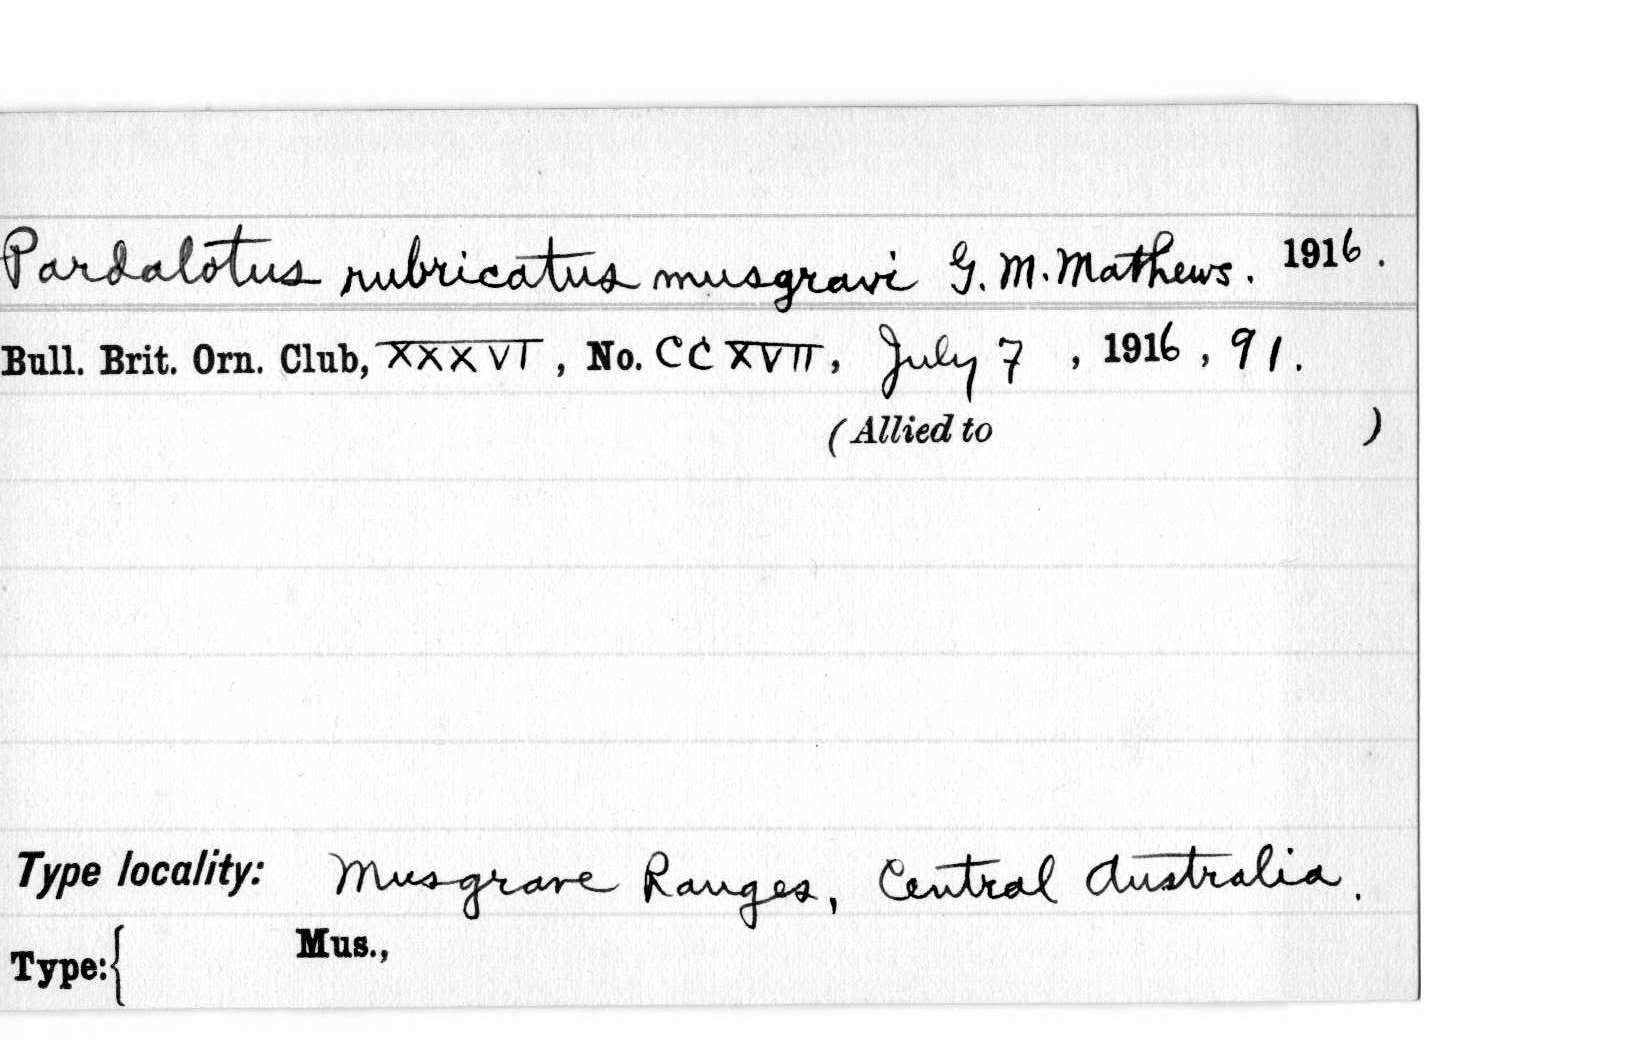 Pardalotus rubricatus musgravi G. M. Mathews. 1916.
Bull. Brit. Orn. Club, XXXVI, No. CCXVII, July 7, 1916, 91.
(Allied to )
Type locality: Musgrave Ranges, Central Australia.
Mus.,
Type:{